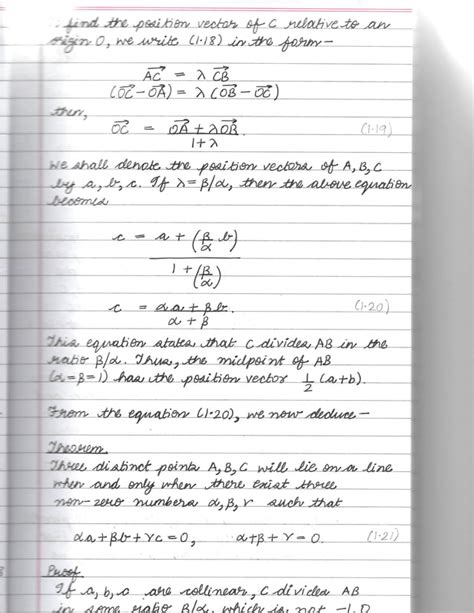 find the position vector of C relative to an
origin O, we write (1.18) in the form—
AC = λ CB
(OC − OA) = λ (OB − OC)
then,
OC = OA + λOB / 1 + λ (1.19)
We shall denote the position vectors of A, B, C
by a, b, c. If λ = β/α, then the above equation
becomes
c = a + (β/α b) / 1 + (β/α)
c = αa + βb / α + β (1.20)
This equation states that C divides AB in the
ratio β/α. Thus, the midpoint of AB
(α = β = 1) has the position vector 1/2 (a+b).
From the equation (1.20), we now deduce—
Theorem.
Three distinct points A, B, C will lie on a line
when and only when there exist three
non-zero numbers α, β, γ such that
αa + βb + γc = 0, α + β + γ = 0. (1.21)
Proof
If a, b, c are collinear, C divides AB
in some ratio β/α, which is not -1.0